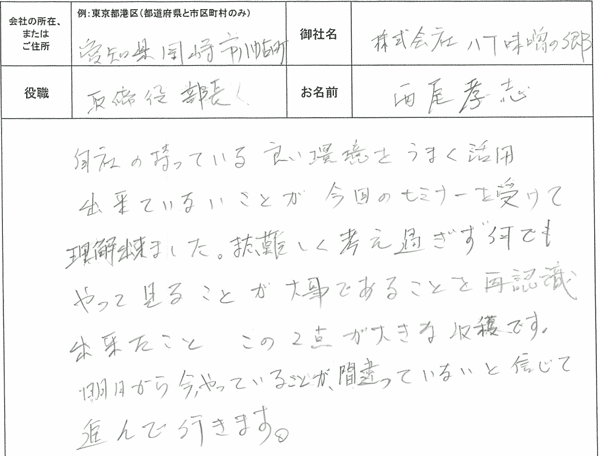 会社の所在、
または
ご住所
例：東京都港区（都道府県と市区町村のみ）
愛知県岡崎市八帖町
御社名
株式会社 八丁味噌の郷
役職
取締役 部長
お名前
西尾 孝志
自社の持っている良い環境をうまく活用
出来ていないことが今回のセミナーを受けて
理解出来ました。又難しく考え過ぎず何でも
やって見ることが大事であることを再認識
出来たこと この2点が大きな収穫です。
明日から今、やっていることが、間違っていないと信じて
進んで行きます。